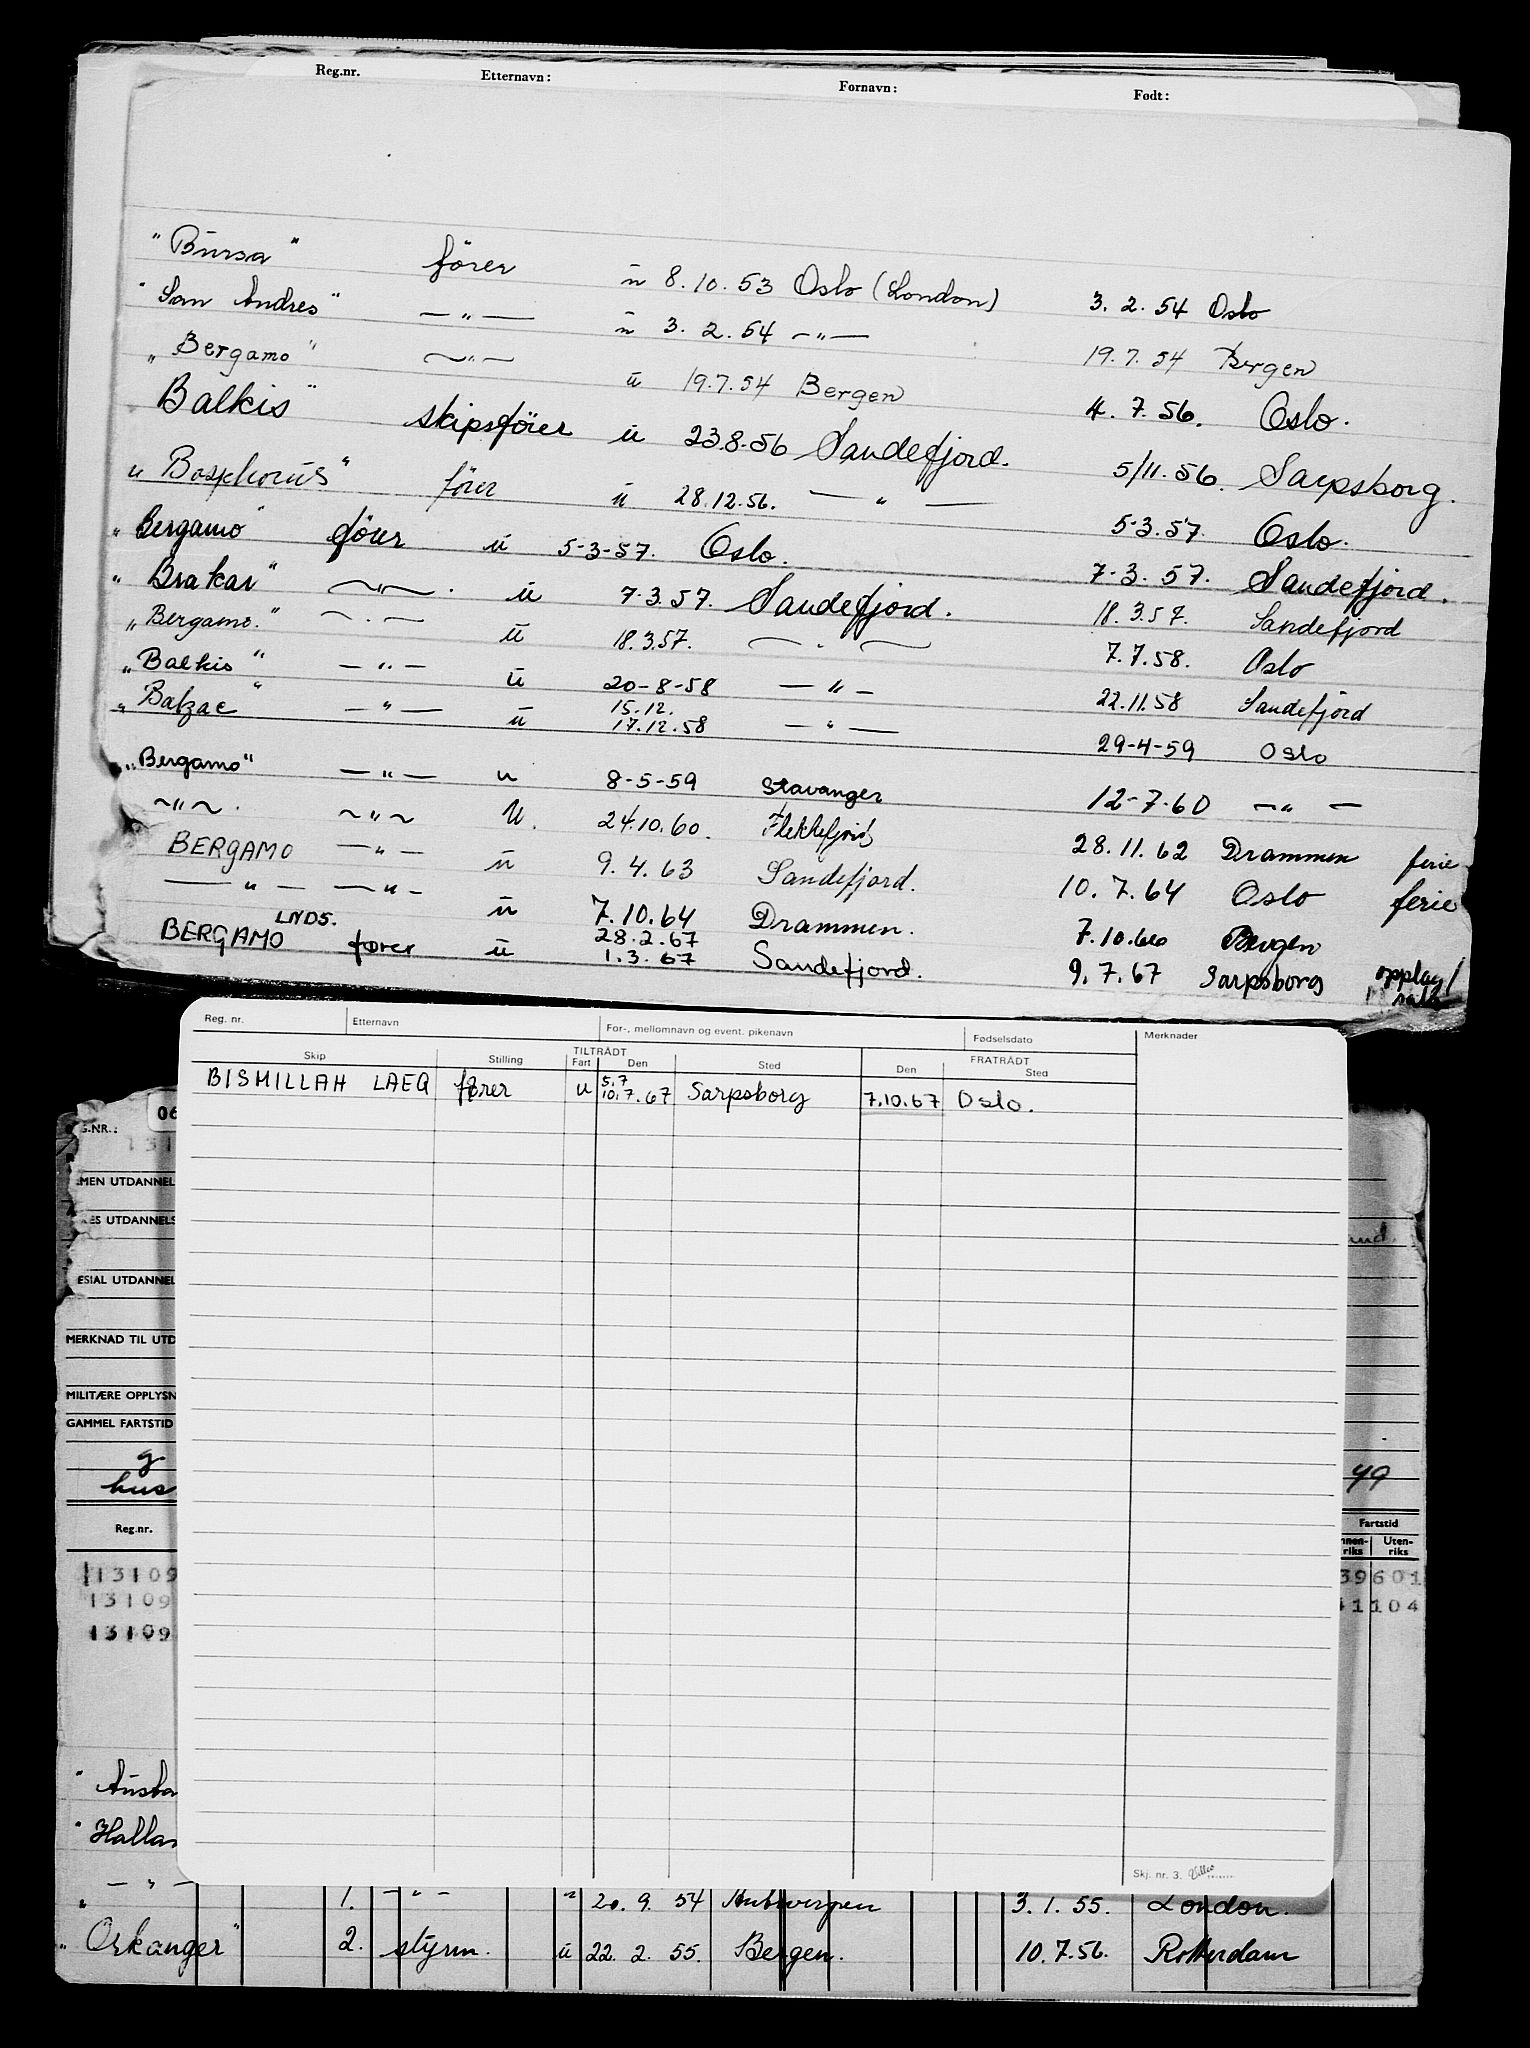 Reg.nr. Etternavn: Fornavn: Født:
"Bursa" fører ū 8.10.53 Oslo (London) 3.2.54 Oslo
"San Andres" —"— ū 3.2.54 —"— 19.7.54 Bergen
"Bergamo" —"— ū 19.7.54 Bergen 4.7.56. Oslo.
Balkis" skipsfører ū 23.8.56 Sandefjord. 5/11.56. Sarpsborg.
"Bosphorus" fører ū 28.12.56. —"— 5-3.57. Oslo.
"Bergamo" fører ū 5-3-57. Oslo. 7-3.57. Sandefjord.
"Brakar" —"—. ū 7.3.57. Sandefjord. 18.3.57. Sandefjord
"Bergamo." —"— ū 18.3.57. —"— 7.7.58. Oslo
"Balkis" —"— ū 20-8-58 —"— 22.11.58 Sandefjord
"Balzac" —"— ū 15.12. 17.12.58 —"— 29-4-59 Oslo
"Bergamo" —"— u 8-5-59 Stavanger 12-7-60 —"—
—"—. —"— U. 24.10.60. Flekkefjord 28.11.62 Drammen ferie
BERGAMO —"— ū 9.4.63 Sandefjord. 10.7.64 Oslo ferie
—"— —"— ū 7.10.64 Drammen. 7.10.66 Bergen
BERGAMO LNDS. fører ū 28.2.67 1.3.67 Sandefjord. 9.7.67 Sarpsborg opplag/
Reg. nr. Etternavn For-, mellomnavn og event. pikenavn Fødselsdato Merknader
TILTRÅDT FRATRÅDT
Skip Stilling Fart Den Sted Den Sted
BISMILLAH LAEQ fører u 5.7 10.7.67 Sarpsborg 7.10.67 Oslo.
06
G.NR.:
131
MEN UTDANNEL
RES UTDANNELS
und.
ESIAL UTDANNEL
MERKNAD TIL UTD
MILITÆRE OPPLYSN
GAMMEL FARTSTID
g
hus 49
Reg.nr. Fartstid
nnen-riks Uten-riks
13109 39601
13109 1104
13109
Skj. nr. 3.
"Austa
"Halla
" —"— 1. —"— " 20.9.54 Antwerpen 3.1.55. London.
"Orkanger" 2. styrm. ū 22.2.55. Bergen. 10.7.56. Rotterdam